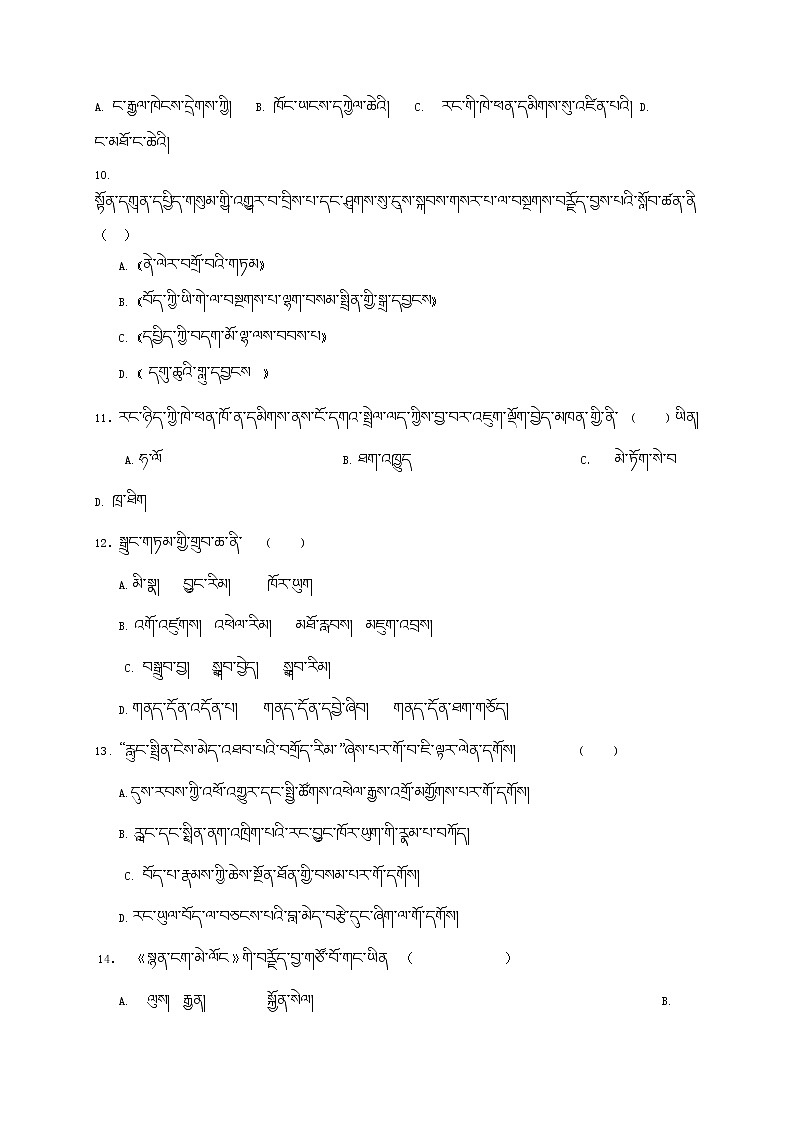 A. ང་རྒྱལ་ཁེངས་དྲེགས་ཀྱི། B. ཁོང་ཡངས་དཀྱེལ་ཆེའི། C. རང་གི་ཁེ་ཕན་དམིགས་སུ་འཛིན་པའི། D.
ང་མཐོ་ང་ཆེའི།
10.
སྟོན་དགུན་དཔྱིད་གསུམ་གྱི་འགྱུར་བ་བྲིས་པ་དང་ཤུགས་སུ་དུས་སྐབས་གསར་པ་ལ་བསྔགས་བརྗོད་བྱས་པའི་སློབ་ཚན་ནི
( )
A.《ནེ་ལེར་བགྲོ་བའི་གཏམ》
B.《བོད་ཀྱི་ཡི་གེ་ལ་བསྔགས་པ་ལྷག་བསམ་སྤྲིན་གྱི་སྒྲ་དབྱངས》
C.《དཔྱིད་ཀྱི་བདག་མོ་ལྷ་ལས་བབས་པ》
D.《 དགུ་ཆུའི་གླུ་དབྱངས 》
11. རང་ཉིད་ཀྱི་ཁེ་ཕན་ཁོ་ན་དམིགས་ནས་ངོ་དགའ་སྤྲེལ་ལད་ཀྱིས་བྱ་བར་འཇུག་ལྡོག་བྱེད་མཁན་གྱི་ནི་ ( ) ཡིན།
A. ཧ་ལོ B. ཐག་འཁྱུད C. མེ་ཏོག་སེ་བ
D. ཁྲ་ཐིག
12. སྒྲུང་གཏམ་གྱི་གྲུབ་ཆ་ནི་ ( )
A. མི་སྣ། བྱུང་རིམ། ཁོར་ཡུག
B. འགོ་འཛུགས། འཕེལ་རིམ། མཐོ་རླབས། མཇུག་འབྲས།
C. བསྒྲུབ་བྱ། སྒྲུབ་བྱེད། སྒྲུབ་རིམ།
D. གནད་དོན་འདོན་པ། གནད་དོན་དབྱེ་ཞིབ། གནད་དོན་ཐག་གཅོད།
13. “རླུང་སྤྲིན་ངེས་མེད་འཐབ་པའི་བགྲོད་རིམ་”ཞེས་པར་གོ་བ་ཇི་ལྟར་ལེན་དགོས། ( )
A. དུས་རབས་ཀྱི་འཕོ་འགྱུར་དང་སྤྱི་ཚོགས་འཕེལ་རྒྱས་འགྲོ་མགྱོགས་པར་གོ་དགོས།
B. རླུང་དང་སྤྲིན་ནག་འཁྲིག་པའི་རང་བྱུང་ཁོར་ཡུག་གི་རྣམ་པ་བཀོད།
C. བོད་པ་རྣམས་ཀྱི་ཆེས་སྔོན་ཐོན་གྱི་བསམ་པར་གོ་དགོས།
D. རང་ཡུལ་བོད་ལ་བཅངས་པའི་བླ་མེད་བརྩེ་དུང་ཞིག་ལ་གོ་དགོས།
14. 《སྙན་ངག་མེ་ལོང》གི་བརྗོད་བྱ་གཙོ་བོ་གང་ཡིན ( )
A. ལུས། རྒྱན། སྐྱོན་སེལ། B.